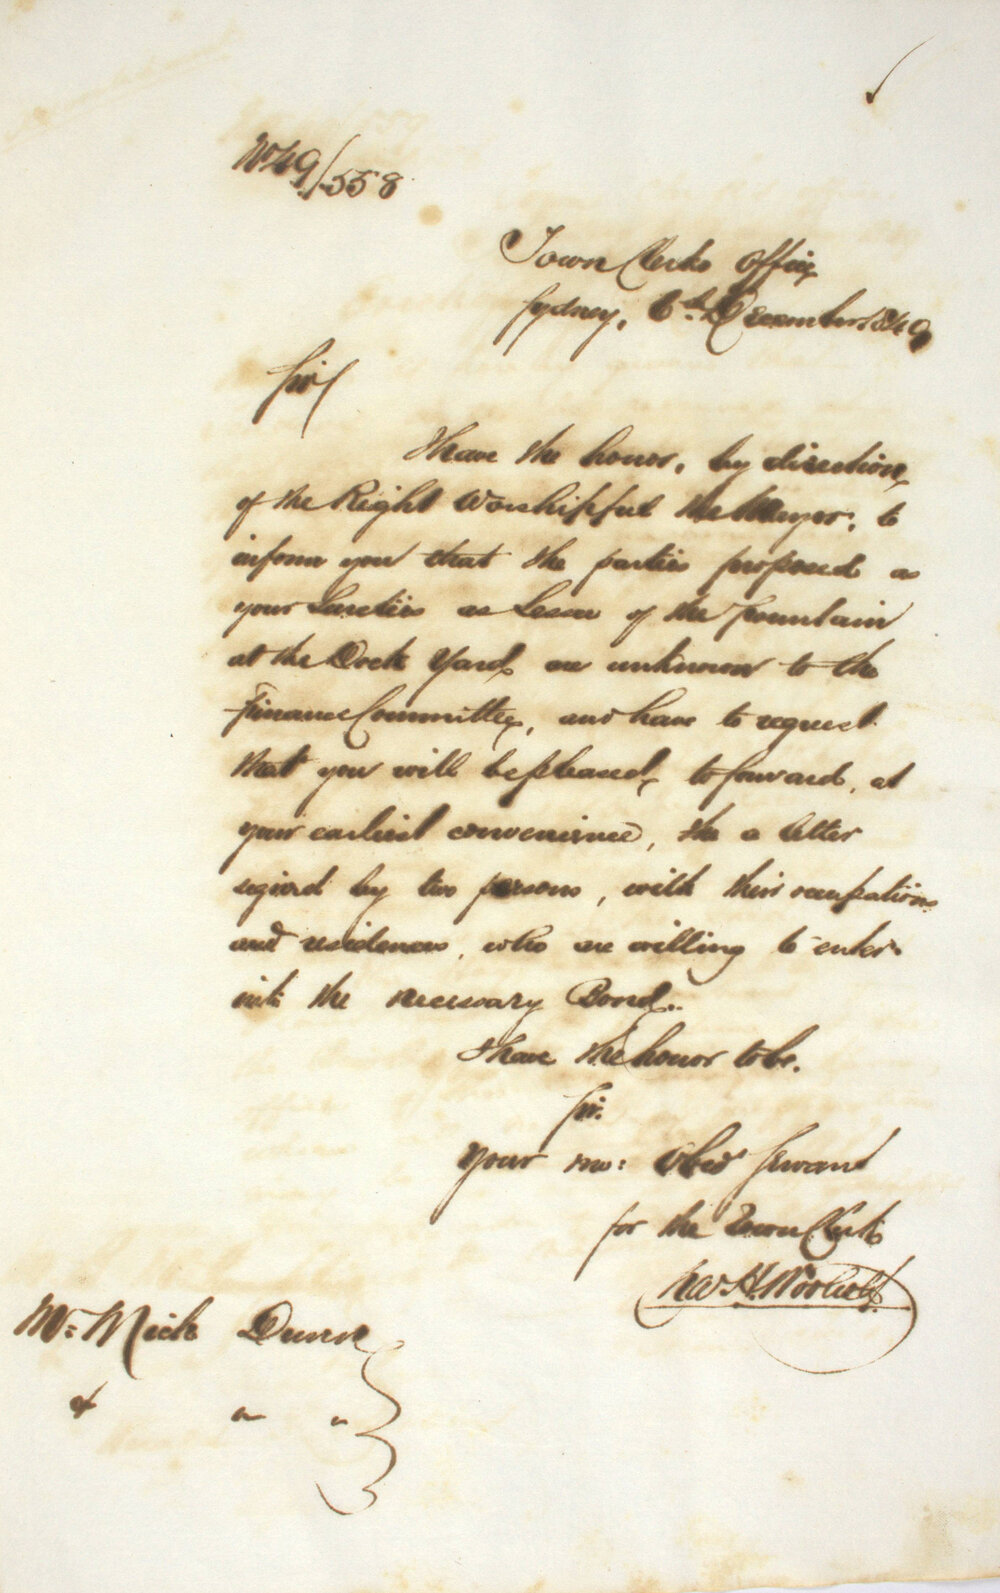 No 49/558
Town Clerks Office
Sydney, 6th December 1849
Sir
I have the honor, by direction
of the Right Worshipful the Mayor, to
inform you that the parties proposed as
your Sureties as Lessee of the Fountain
at the Dock Yard, are unknown to the
Finance Committee, and have to request
that you will be pleased, to forward, at
your earliest convenience, the a letter
signed by two persons, with their occupations
and residences, who are willing to enter
into the necessary Bond.
I have the honor to be.
Sir.
Your mo: Obed Servant
for the Town Clerk
H. Woolcott
Mr: Mick Dunn
&